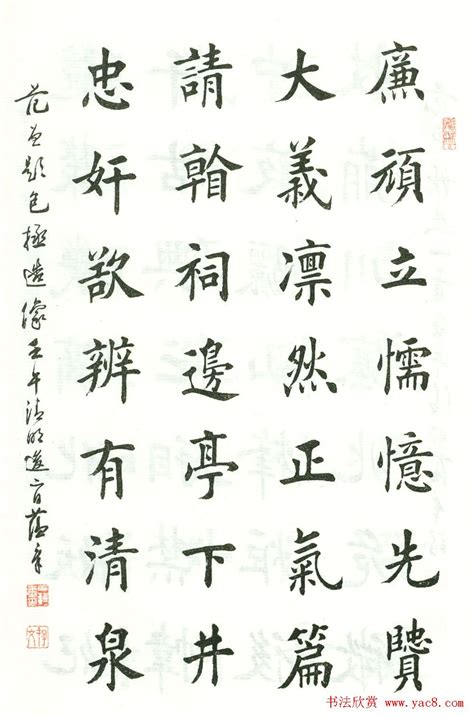 廉頑立懦憶先贒
大義凛然正氣篇
請看祠邊亭下井
忠奸欲辨有清泉
題包拯造像壬午清明
书法欣赏 www.yac8.com